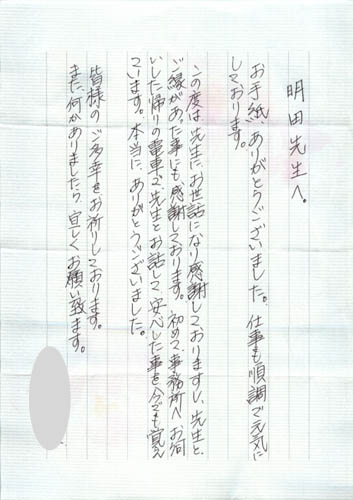 明田先生へ。
お手紙、ありがとうございました。仕事も順調で元気に
しております。
この度は先生にお世話になり感謝しておりますし、先生と、
ご縁があった事にも感謝しております。初めて、事務所へ、お伺
いした帰りの電車で、先生とお話して安心した事を今でも覚え
ています。本当に、ありがとうございました。
皆様のご多幸をお祈りしております。
また、何かありましたら、宜しくお願い致します。